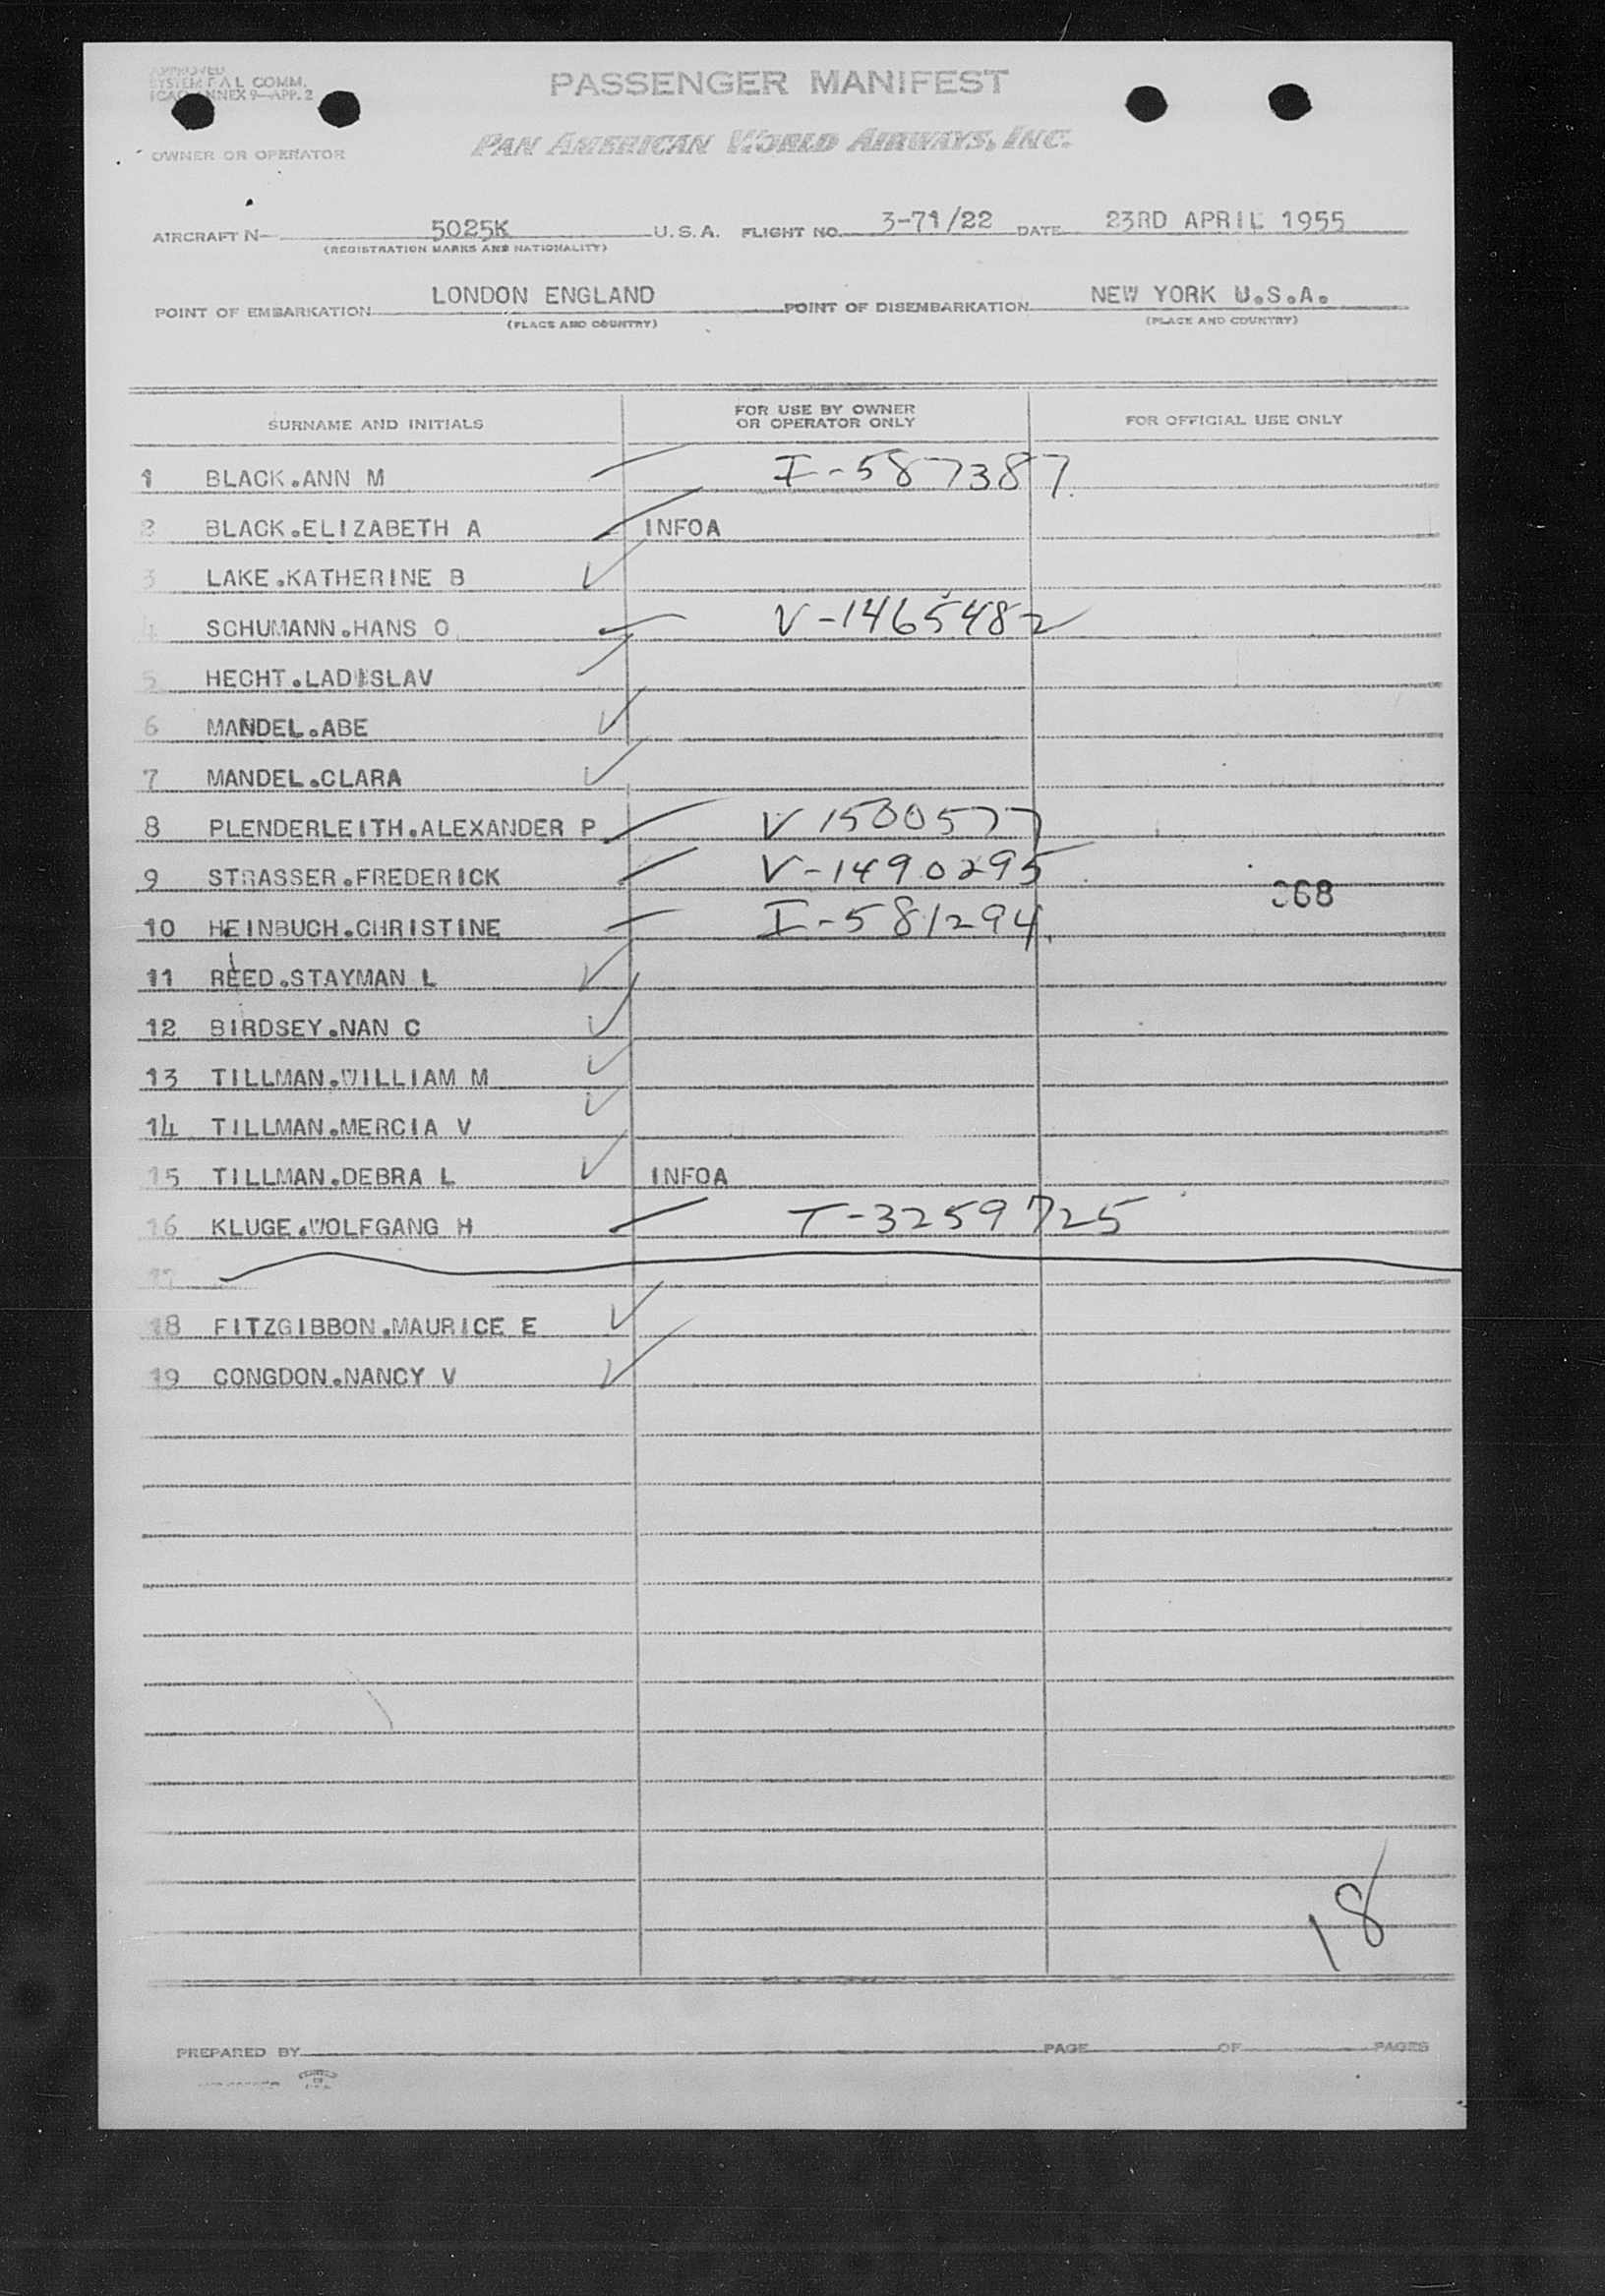 APPROVED
SYSTEM F A L COMM.
ICAO ANNEX 9—APP. 2
PASSENGER MANIFEST
OWNER OR OPERATOR PAN AMERICAN WORLD AIRWAYS, INC.
AIRCRAFT N- 5025K U.S.A. FLIGHT NO. 3-71/22 DATE 23RD APRIL 1955
(REGISTRATION MARKS AND NATIONALITY)
POINT OF EMBARKATION LONDON ENGLAND POINT OF DISEMBARKATION NEW YORK U.S.A.
(PLACE AND COUNTRY) (PLACE AND COUNTRY)
SURNAME AND INITIALS FOR USE BY OWNER OR OPERATOR ONLY FOR OFFICIAL USE ONLY
1 BLACK.ANN M I-587387.
2 BLACK.ELIZABETH A INFOA
3 LAKE.KATHERINE B
4 SCHUMANN.HANS O V-1465482
5 HECHT.LADISLAV
6 MANDEL.ABE
7 MANDEL.CLARA
8 PLENDERLEITH.ALEXANDER P V 1500577
9 STRASSER.FREDERICK V-1490295
368
10 HEINBUCH.CHRISTINE I-581294.
11 REED.STAYMAN L
12 BIRDSEY.NAN C
13 TILLMAN.WILLIAM M
14 TILLMAN.MERCIA V
15 TILLMAN.DEBRA L INFOA
16 KLUGE.WOLFGANG H T-3259725
17
18 FITZGIBBON.MAURICE E
19 CONGDON.NANCY V
18
PREPARED BY PAGE OF PAGES